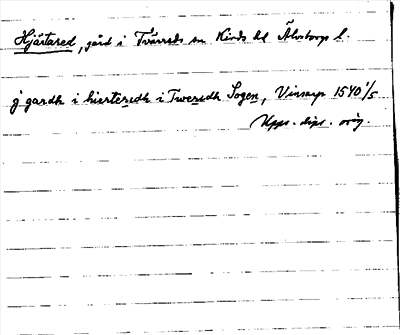 Hjärtared, gård i Tvärreds sn Kinds hd Älvsborgs l.
j gardh i hierteredh i Tweredh Sogen, Vinsarp 1540 1/5
Upps. dipl. orig.